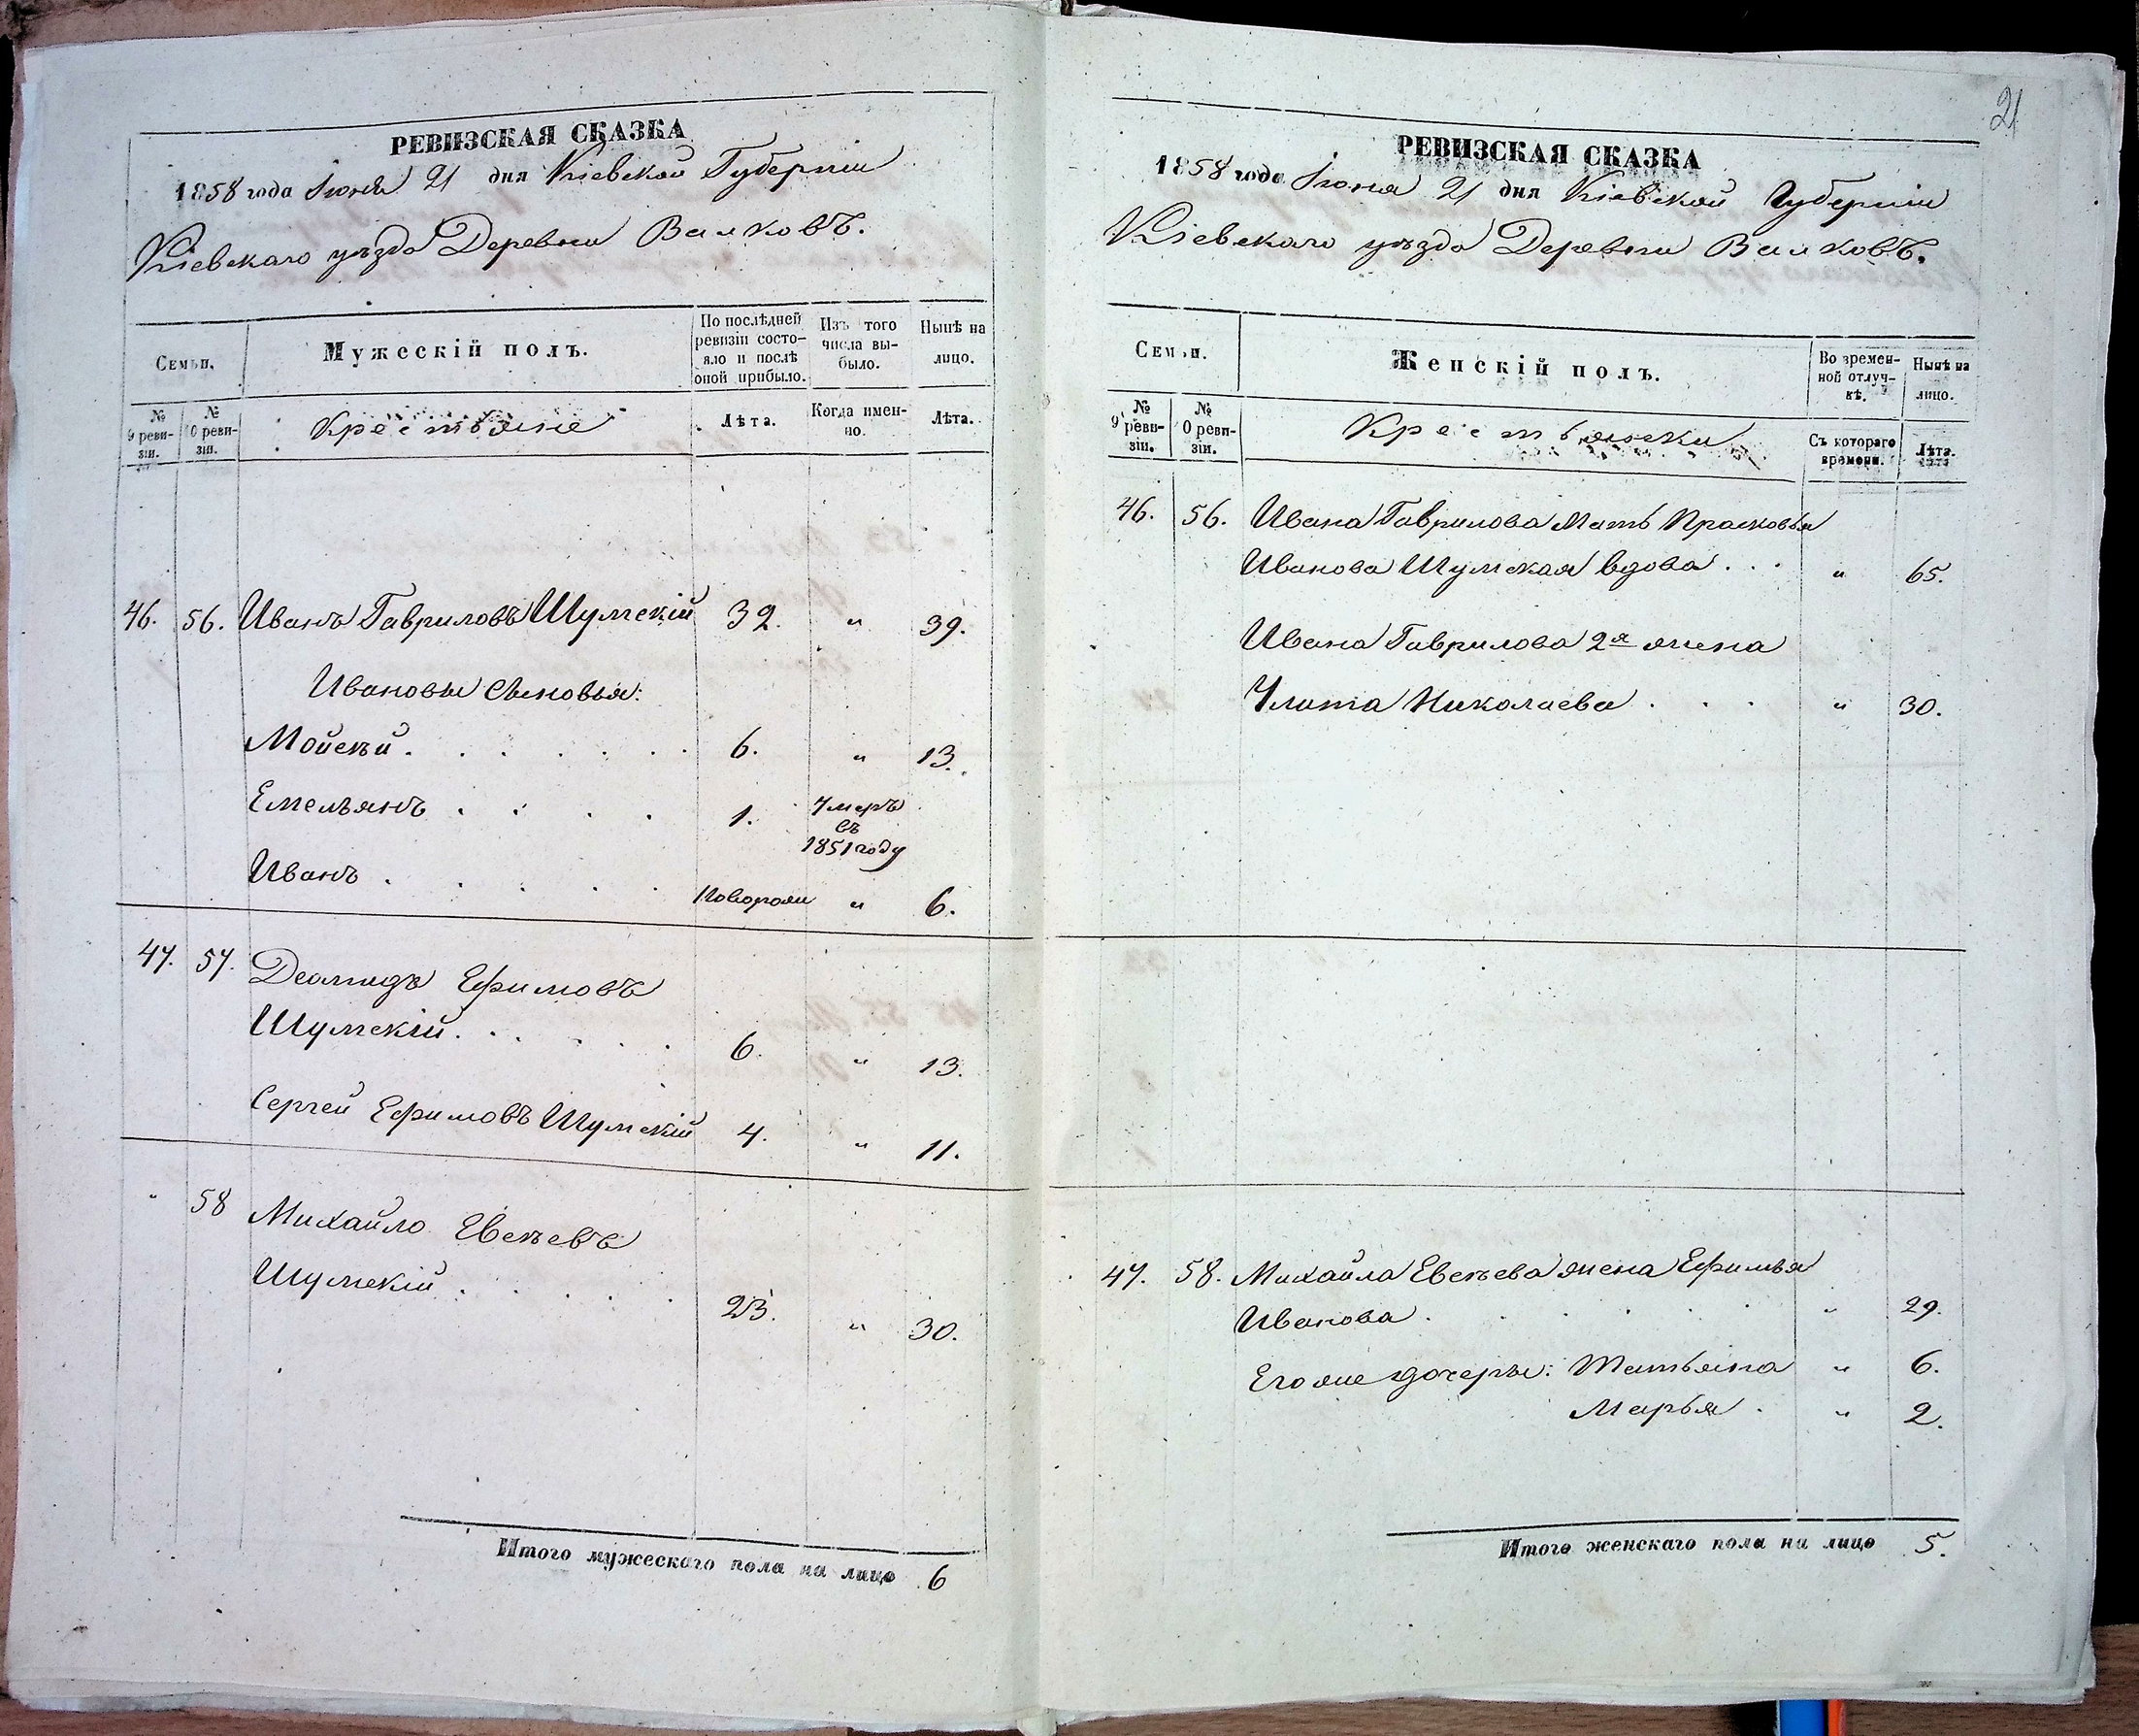 РЕВИЗСКАЯ СКАЗКА
1858 года Июня 21 дня Кіевской Губерніи
Кіевскаго уѣзда Деревни Вилковъ.
Семьи.
Мужескій полъ.
По послѣдней ревизіи состояло и послѣ оной прибыло.
Изъ того числа выбыло.
Нынѣ на лицо.
№ 9 ревизіи.
№ 10 ревизіи.
Крестьяне
Лѣта.
Когда именно.
Лѣта.
46. 56. Иванъ Гавриловъ Шумскій 32. „ 39.
Ивановы Сыновья:
Мойсѣй . . . . . . 6. „ 13.
Емельянъ . . . . 1. Умеръ
въ
1851 году
Иванъ . . . . . Новорожд „ 6.
47. 57. Деомидъ Ефимовъ
Шумскій . . . . . 6. „ 13.
Сергей Ефимовъ Шумскій 4. „ 11.
„ 58 Михайло Евсѣевъ
Шумскій . . . . . 23. „ 30.
Итого мужескаго пола на лицо 6
21
РЕВИЗСКАЯ СКАЗКА
1858 года Июня 21 дня Кіевской Губерніи
Кіевскаго уѣзда Деревни Вилковъ.
Семьи.
Женскій полъ.
Во временной отлучкѣ.
Нынѣ на лицо.
№ 9 ревизіи.
№ 10 ревизіи.
Крестьянки
Съ котораго времени.
Лѣта.
46. 56. Ивана Гаврилова Мать Прасковья
Иванова Шумская вдова . . . „ 65.
Ивана Гаврилова 2я жена
Улита Николаева . . . „ 30.
47. 58. Михайла Евсѣева жена Ефимья
Иванова . . . . . „ 29.
Его же дочеры: Татьяна „ 6.
Марья . „ 2.
Итого женскаго пола на лицо 5.